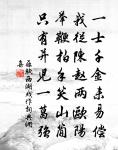 一士千金未易償
我從陳趙兩歐陽
舉鞭拍手笑山簡
只有并兒一葛強
蘇軾西湖戲作詞典網
集